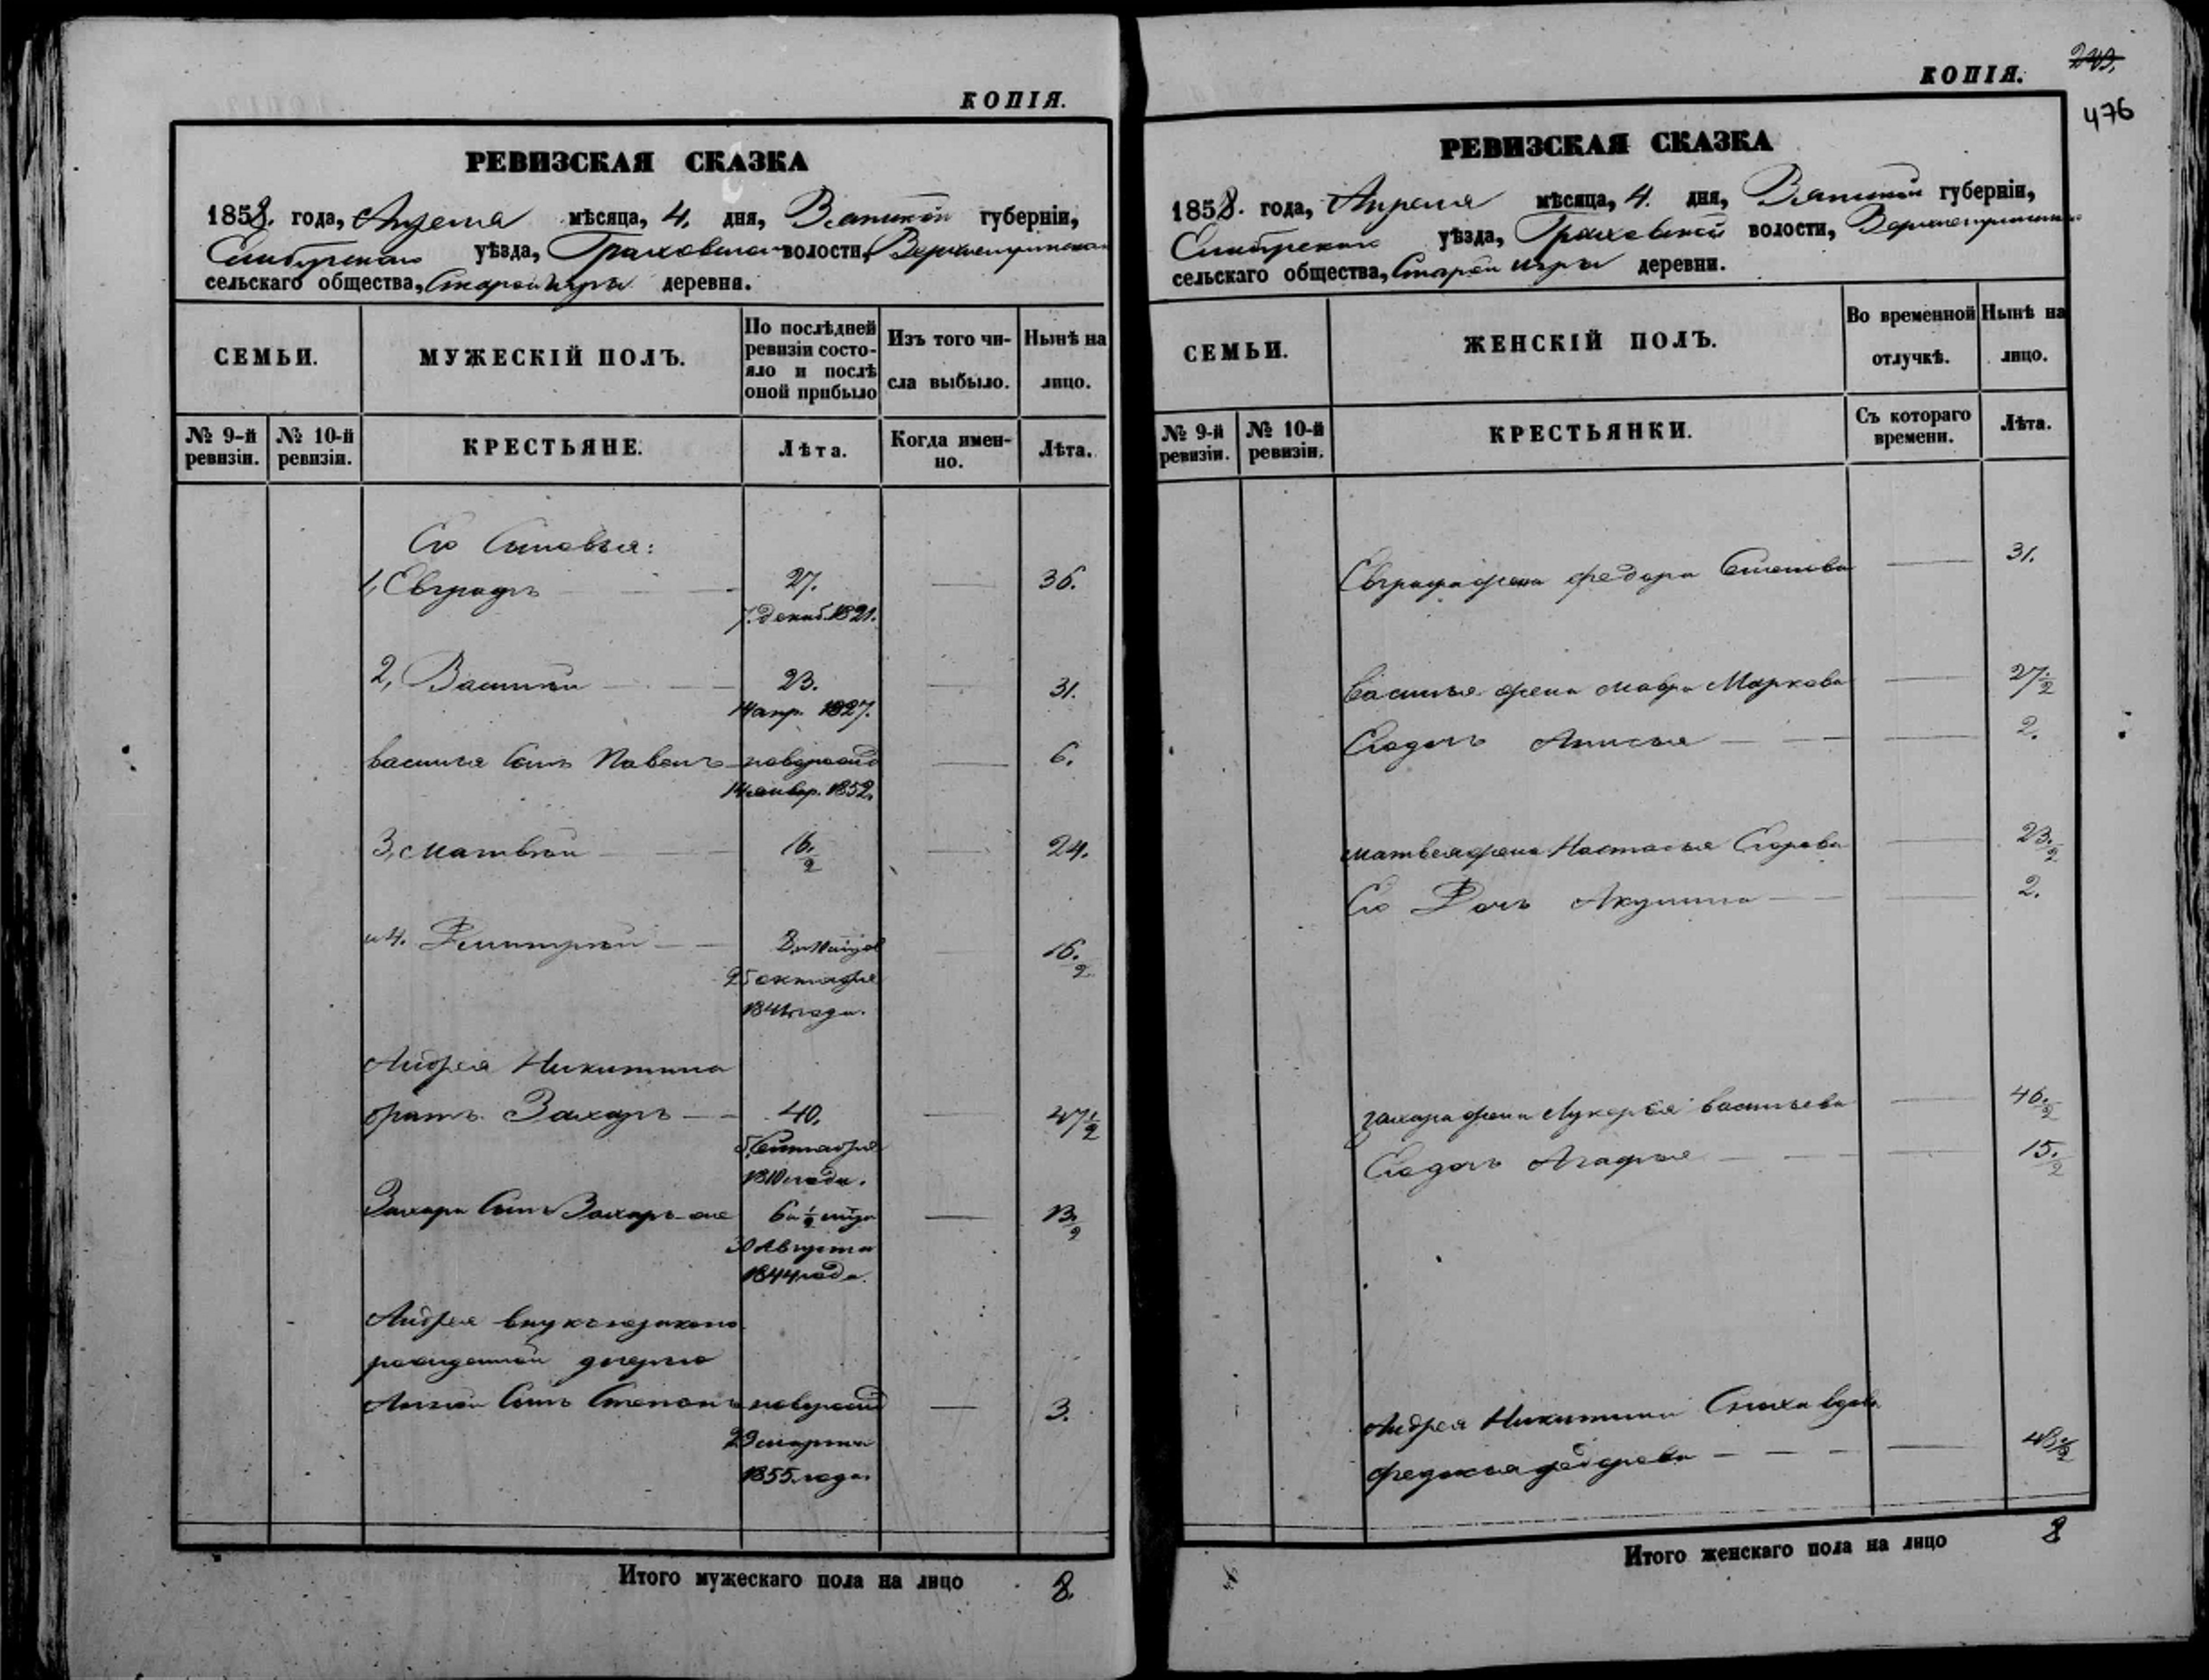 КОПІЯ.
РЕВИЗСКАЯ СКАЗКА
1858. года, Апреля мѣсяца, 4. дня, Вятской губерніи,
уѣзда, Граховской волости,
сельскаго общества, Старой Игры деревня.
СЕМЬИ.
МУЖЕСКІЙ ПОЛЪ.
По послѣдней ревизіи состояло и послѣ оной прибыло
Изъ того числа выбыло.
Нынѣ на лицо.
№ 9-й ревизіи.
№ 10-й ревизіи.
КРЕСТЬЯНЕ.
Лѣта.
Когда именно.
Лѣта.
Его Сыновья:
1, Евграфъ 27. 36.
7. декаб. 1821.
2, Василій 23. 31.
14 апр. 1827.
василья Сынъ Павелъ новорожд 6.
14 январ. 1852.
3, Матвѣй 16. 1/2 24.
и 4. Дмитрій 16. 1/2
25 октября
1841 года.
Андрея Никитина
братъ Захаръ 40. 47 1/2
5. Сентября
1810 года.
Захара Сынъ Захаръ же 6 и 1/2 м̃ца 13 1/2
30 Августа
1844 года.
Андрея внукъ незаконно
рожденной дочерью
Сынъ Степанъ новорожд 3.
29 марта
1855 года.
Итого мужескаго пола на лицо 8.
КОПІЯ.
476
РЕВИЗСКАЯ СКАЗКА
1858. года, Апреля мѣсяца, 4. дня, Вятской губерніи,
уѣзда, Граховской волости,
сельскаго общества, Старой Игры деревни.
СЕМЬИ.
ЖЕНСКІЙ ПОЛЪ.
Во временной отлучкѣ.
Нынѣ на лицо.
№ 9-й ревизіи.
№ 10-й ревизіи.
КРЕСТЬЯНКИ.
Съ котораго времени.
Лѣта.
Евграфа жена федора 31.
Василья жена мавра Маркова 27. 1/2
Его дочь Анисья 2.
матвея жена Настасья Егорова 23. 1/2
Его Дочь Акулина 2.
захара жена Лукерья васильева 46. 1/2
Его дочь Агафья 15. 1/2
Андрея Никитина Сноха вдова
федосья федорова 43 1/2
Итого женскаго пола на лицо 8